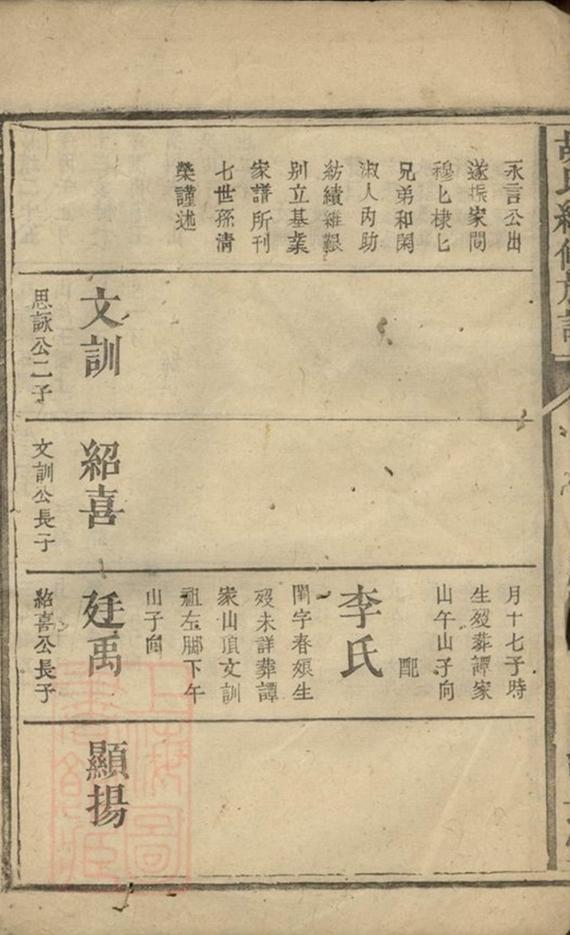 永言公出
遂振家間
穆匕棣匕
兄弟和閑
淑人內助
紡績維艱
別立基業
家譜所刊
七世孫清
榮謹述
文訓
思詠公二子
紹喜
文訓公長子
月十七子時
生歿葬譚家
山午山子向
配
李氏
閨字春娘生
歿未詳葬譚
家山頂文訓
祖左脚下午
山子向
廷禹
紹喜公長子
顯揚